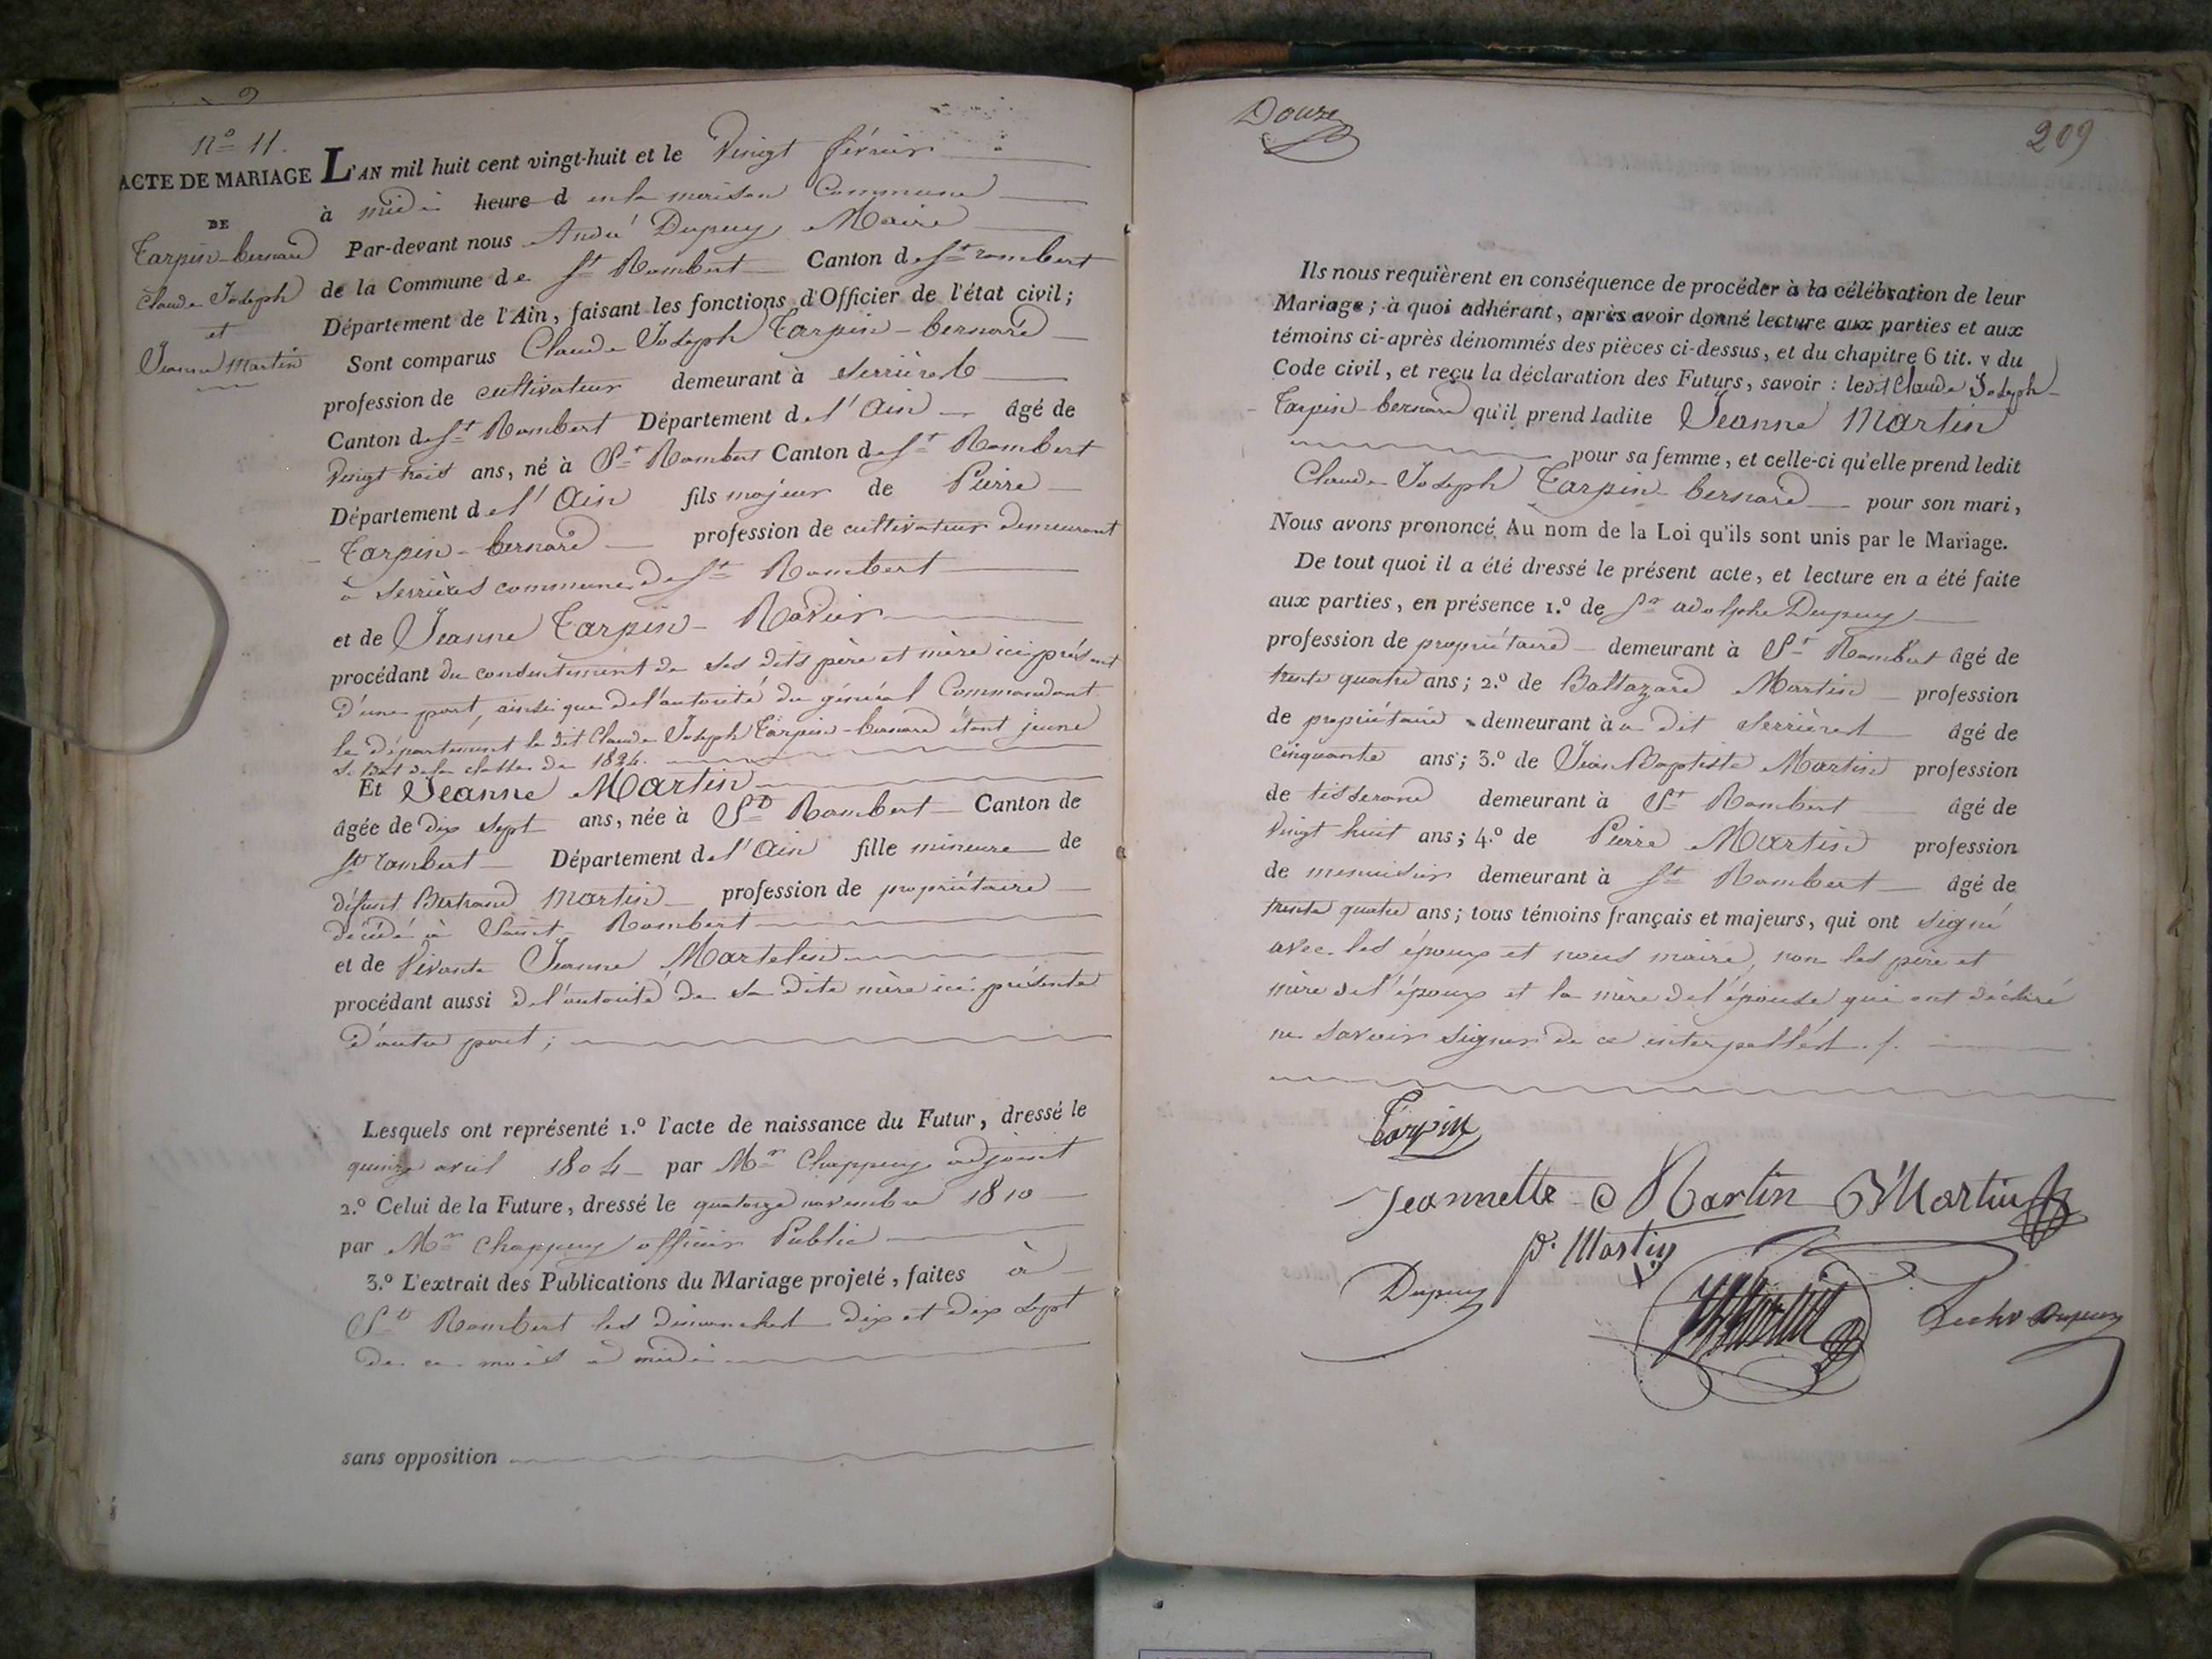 N° 11.
ACTE DE MARIAGE
DE
Tarpin-bernard
Claude Joseph
et
Jeanne Martin
L'AN mil huit cent vingt-huit et le Vingt février
à midi heure d en la maison Commune
Par-devant nous André Dupuy, Maire
de la Commune de St Rambert Canton de St rambert
Département de l'Ain, faisant les fonctions d'Officier de l'état civil;
Sont comparus Claude Joseph Tarpin-bernard
profession de cultivateur demeurant à Serrières
Canton de St Rambert Département de l'Ain âgé de
Vingt trois ans, né à St Rambert Canton de St Rambert
Département de l'Ain fils majeur de Pierre
Tarpin-bernard profession de cultivateur demeurant
à Serrières commune de St Rambert
et de Jeanne Tarpin-Ravier
procédant du consentement de ses dits père et mère ici présent
d'une part, ainsi que de l'autorité du général Commandant
le département le dit Claude Joseph Tarpin-bernard étant jeune
Soldat de la classe de 1824.
Et Jeanne Martin
âgée de dix sept ans, née à St Rambert Canton de
St rambert Département de l'Ain fille mineure de
défunt Bertrand Martin profession de propriétaire
décédé à Saint-Rambert
et de Vivante Jeanne Martelin
procédant aussi de l'autorité de sa dite mère ici présente
d'autre part;
Lesquels ont représenté 1.° l'acte de naissance du Futur, dressé le
quinze avril 1804 par Mr Chappuy adjoint
2.° Celui de la Future, dressé le quatorze novembre 1810
par Mr Chappuy officier Public
3.° L'extrait des Publications du Mariage projeté, faites à
St Rambert les dimanches dix et dix sept
de ce mois à midi
sans opposition
Douze
209
Ils nous requièrent en conséquence de procéder à la célébration de leur
Mariage; à quoi adhérant, après avoir donné lecture aux parties et aux
témoins ci-après dénommés des pièces ci-dessus, et du chapitre 6 tit. v du
Code civil, et reçu la déclaration des Futurs, savoir : ledit Claude Joseph
Tarpin-bernard qu'il prend ladite Jeanne Martin
pour sa femme, et celle-ci qu'elle prend ledit
Claude Joseph Tarpin-bernard pour son mari,
Nous avons prononcé Au nom de la Loi qu'ils sont unis par le Mariage.
De tout quoi il a été dressé le présent acte, et lecture en a été faite
aux parties, en présence 1.° de Sr adolphe Dupuy
profession de propriétaire demeurant à St Rambert âgé de
trente quatre ans; 2.° de Baltazard Martin profession
de propriétaire demeurant à u dit Serrières âgé de
cinquante ans; 3.° de Jean Baptiste Martin profession
de tisserand demeurant à St Rambert âgé de
Vingt huit ans; 4.° de Pierre Martin profession
de menuisier demeurant à St Rambert âgé de
trente quatre ans; tous témoins français et majeurs, qui ont signé
avec les époux et nous maire, non les père et
mère de l'époux et la mère de l'épouse qui ont déclaré
ne savoir signer de ce interpellés./.
Tarpin
Jeannette Martin B Martin
P. Martin
Dupuy
Dupuy